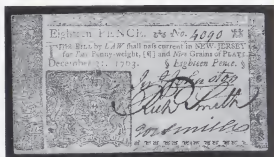 Eighteen PENCE. No. 4090
THIS BILL by LAW shall pass current in NEW-JERSEY
for Four Penny-weight, and Nine Grains of PLATE.
December 31. 1763. Eighteen Pence.
Smith
Smith